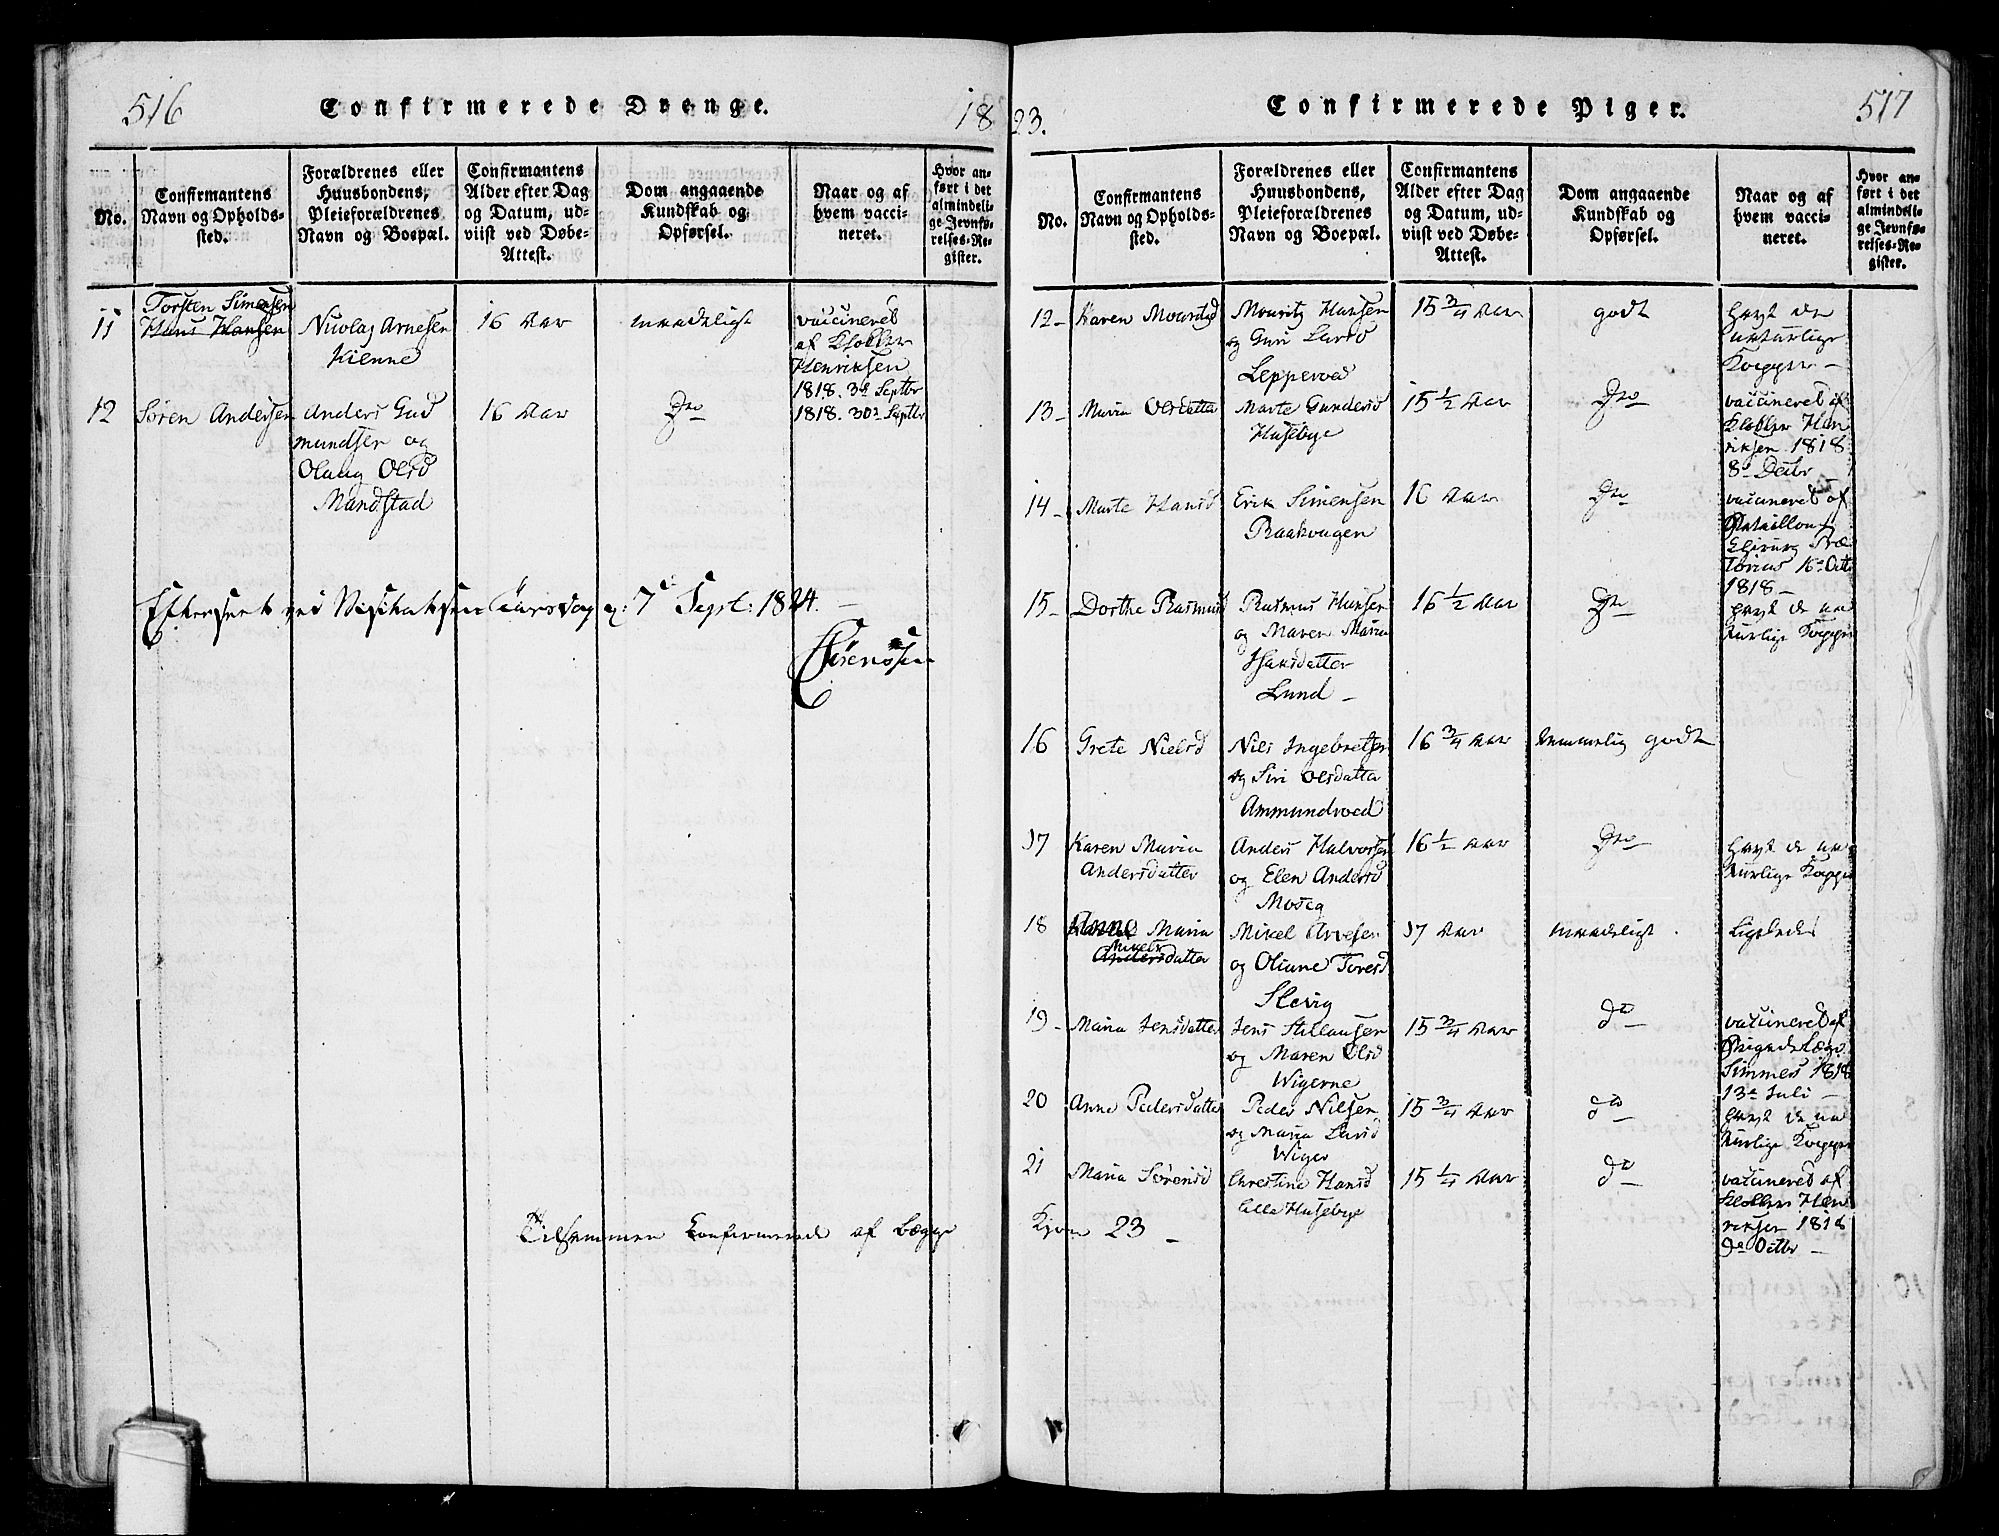 516
Confirmerede Drenge.
18
No.
Confirmantens Navn og Opholds-sted.
Forældrenes eller Huusbondens, Pleieforældrenes Navn og Boepæl.
Confirmantens Alder efter Dag og Datum, ud-viist ved Døbe-Attest.
Dom angaaende Kundskab og Opførsel.
Naar og af hvem vacci-neret.
Hvor an-ført i det almindeli-ge Jevnfø-relses-Re-gister.
11
Torsten Simensen
Hans Hansen
Nicolay Arnesen
Kienne
16 Aar
maadeligt
vaccineret
af Klokker
Henriksen
1818. 3d Septbr
12
Søren Andersen
Anders Gud
mundsen og
Olaug Olsd
Mandstad
16 Aar
Do
1818. 30d Septbr
Efterseet ved Visitatsen Aarsdag 7d Sept: 1824. —
Sørenssen
Tilsammen Confirmerede af bægge
23.
Confirmerede Piger.
517
No.
Confirmantens Navn og Opholds-sted.
Forældrenes eller Huusbondens, Pleieforældrenes Navn og Boepæl.
Confirmantens Alder efter Dag og Datum, ud-viist ved Døbe-Attest.
Dom angaaende Kundskab og Opførsel.
Naar og af hvem vacci-neret.
Hvor an-ført i det almindeli-ge Jevnfø-relses-Re-gister.
12 –
Karen Mouritsd
Mouritz Hansen
og Guri Larsd
Lepperød
15 3/4 Aar
godt
havt de
naturlige
Kopper –
13 –
Maria Olsdatter
Marte Gundersd
Husebye
15 1/2 Aar
Do
vaccineret af
Klokker Hen
riksen 1818
8d Decbr
14 –
Marte Hansd
Erik Simensen
Raakvagen
16 Aar
Do
vaccineret af
Batallions
Chirurg Præ
torius 16d Octr
1818 –
15 –
Dorthe Rasmusd
Rasmus Hansen
og Maren Maria
Isaksdatter
Lund –
16 1/2 Aar
Do
havt de na
turlige Kopper
16
Grete Nielsd
Nils Ingebretsen
og Siri Olsdatter
Ammundrød
16 3/4 Aar
temmelig godt
17
Karen Maria
Andersdatter
Anders Halvorsen
og Elen Andersd
Moseg
16 1/2 Aar
Do
havt de na
turlige Kopper
18
Anne Maria
Mikels
Andersdatter
Mikel Arvesen
og Oliane Toresd
Slevig
17 Aar
maadeligt
Ligeledes
19 –
Maria Jensdatter
Jens Stillausen
og Maren Olsd
Wigerne
15 3/4 Aar
do
vaccineret af
Brigadelæge
Simmers 1818
13d Juli –
20
Anne Pedersdatter
Peder Nilsen
og Maria Larsd
Wiger
15 3/4 Aar
do
havt de na
turlige Kopper
21
Maria Sørensd
Christine Hansd
Lille Husebye
15 1/4 Aar
do
vaccineret af
Klokker Hen
riksen 1818
9d Octbr –
Kjøn 23 –